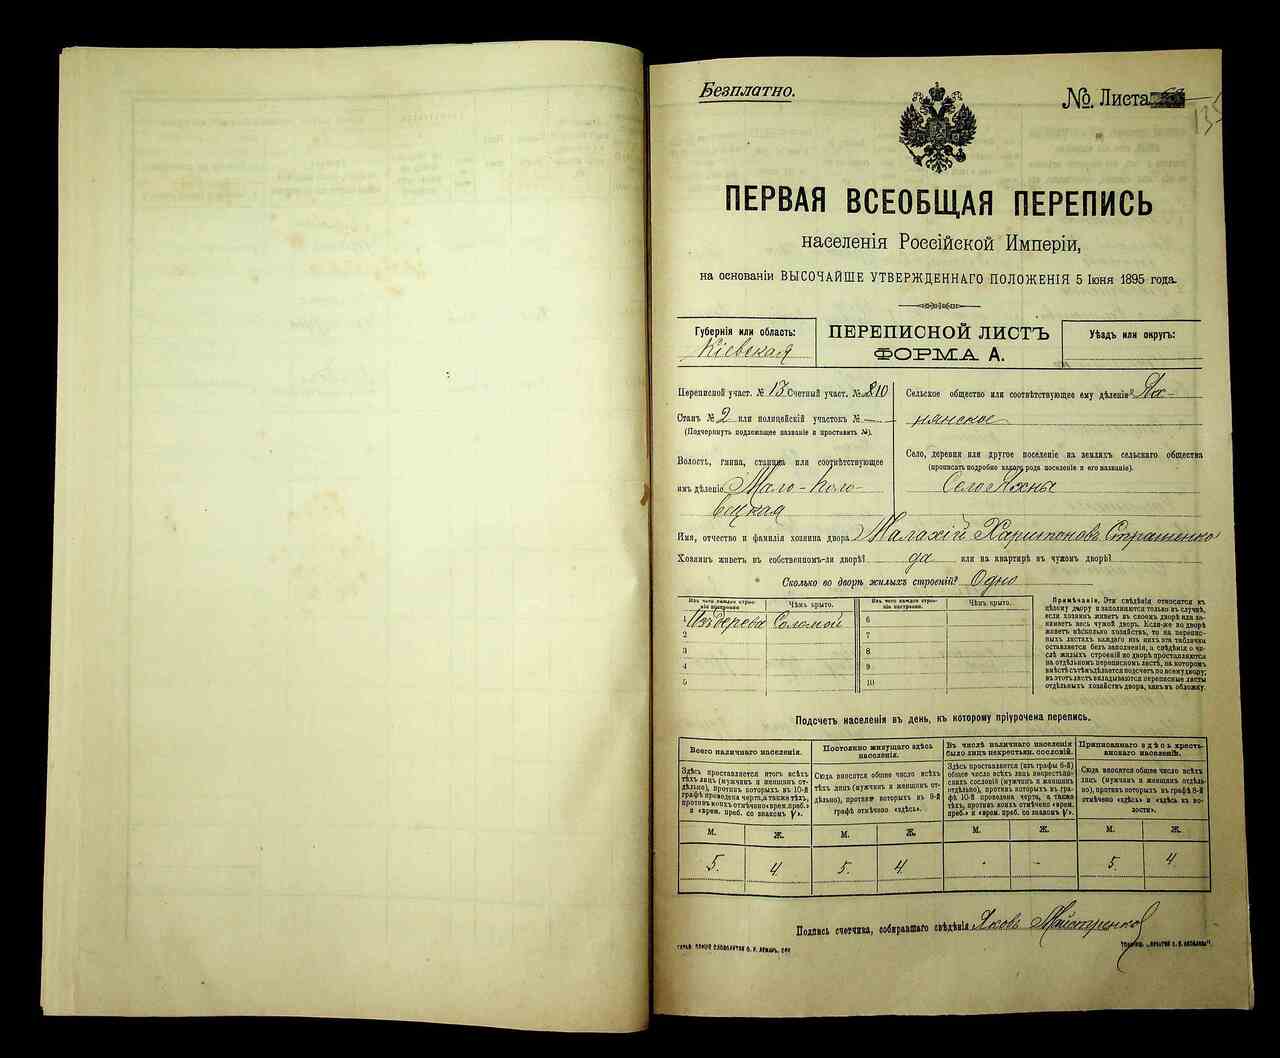 Безплатно.
№. Листа
135
ПЕРВАЯ ВСЕОБЩАЯ ПЕРЕПИСЬ
населенія Россійской Имперіи,
на основаніи ВЫСОЧАЙШЕ УТВЕРЖДЕННАГО ПОЛОЖЕНІЯ 5 Іюня 1895 года.
Губернія или область:
Кіевская
ПЕРЕПИСНОЙ ЛИСТЪ
ФОРМА А.
Уѣздъ или округъ:
Переписной участ. № 13 Счетный участ. № 10
Станъ № 2 или полицейскій участокъ № —
(Подчеркнуть подлежащее названіе и проставить №).
Волость, гмина, станица или соотвѣтствующее
имъ дѣленіе Мало-Поло-
вецкая
Сельское общество или соотвѣтствующее ему дѣленіе? Ях-
нянское
Село, деревня или другое поселеніе на земляхъ сельскаго общества
(прописать подробно какого рода поселеніе и его названіе).
Село Яхны
Имя, отчество и фамилія хозяина двора Малахій Харитоновъ Страшенко
Хозяинъ живетъ въ собственномъ-ли дворѣ? да или на квартирѣ въ чужомъ дворѣ?
Сколько во дворѣ жилыхъ строеній? Одно
Изъ чего каждое строе-
ніе построено
Чѣмъ крыто.
Изъ чего каждое строе-
ніе построено.
Чѣмъ крыто.
1 Изъ дерева Соломой
2
3
4
5
6
7
8
9
10
Примѣчаніе. Эти свѣдѣнія относятся къ
цѣлому двору и заполняются только въ случаѣ,
если хозяинъ живетъ въ своемъ дворѣ или за-
нимаетъ весь чужой дворъ. Если-же во дворѣ
живетъ нѣсколько хозяйствъ, то на перепис-
ныхъ листахъ каждаго изъ нихъ эта табличка
оставляется безъ заполненія, а свѣдѣнія о чи-
слѣ жилыхъ строеній во дворѣ проставляются
на отдѣльномъ переписномъ листѣ, на которомъ
вмѣстѣ съ тѣмъ дѣлается подсчетъ по всему двору;
въ этотъ листъ вкладываются переписные листы
отдѣльныхъ хозяйствъ двора, какъ въ обложку.
Подсчетъ населенія въ день, къ которому пріурочена перепись.
Всего наличнаго населенія.
Здѣсь проставляется итогъ всѣхъ
тѣхъ лицъ (мужчинъ и женщинъ от-
дѣльно), противъ которыхъ въ 10-й
графѣ проведена черта, а также тѣхъ,
противъ коихъ отмѣчено «врем. преб.»
и «врем. преб. со знакомъ V».
Постоянно живущаго здѣсь
населенія.
Сюда вносится общее число всѣхъ
тѣхъ лицъ (мужчинъ и женщинъ от-
дѣльно), противъ которыхъ въ 9-й
графѣ отмѣчено «здѣсь».
Въ числѣ наличнаго населенія
было лицъ некрестьян. сословій.
Здѣсь проставляется (изъ графы 6-й)
общее число всѣхъ лицъ некрестьян-
скихъ сословій (мужчинъ и женщинъ
отдѣльно), противъ которыхъ въ гра-
фѣ 10-й проведена черта, а также
тѣхъ, противъ коихъ отмѣчено «врем.
преб.» и «врем. преб. со знакомъ V».
Приписаннаго здѣсь кресть-
янскаго населенія.
Сюда вносится общее число всѣхъ
лицъ (мужчинъ и женщинъ отдѣль-
но), противъ которыхъ въ графѣ 8-й
отмѣчено «здѣсь» и «здѣсь къ во-
лости».
М. Ж. М. Ж. М. Ж. М. Ж.
5. 4. 5. 4. - - 5. 4
Подпись счетчика, собиравшаго свѣдѣнія Яковъ Майстренко